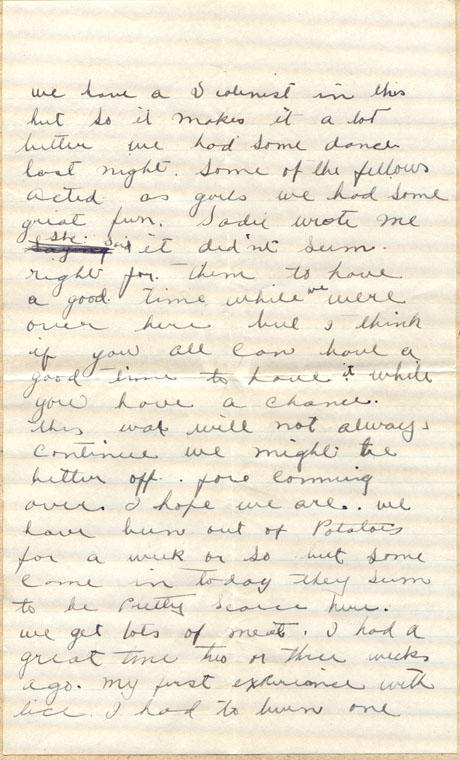 we have a Violinist in this
hut so it makes it a lot
better we had some dances
last night. Some of the fellows
acted as girls we had some
great fun. Sadie wrote me
saying she said it did'nt seem
right for them to have
a good time while we were
over here but I think
if you all can have a
good time to have it while
you have a chance.
this war will not always
continue we might be
better off for comming
over. I hope we are. we
have been out of Potatoes
for a week or so but some
come in today they seem
to be Pretty Scarce here.
we get lots of meat. I had a
great time two or three weeks
ago. my first experiance with
lice. I had to burn one